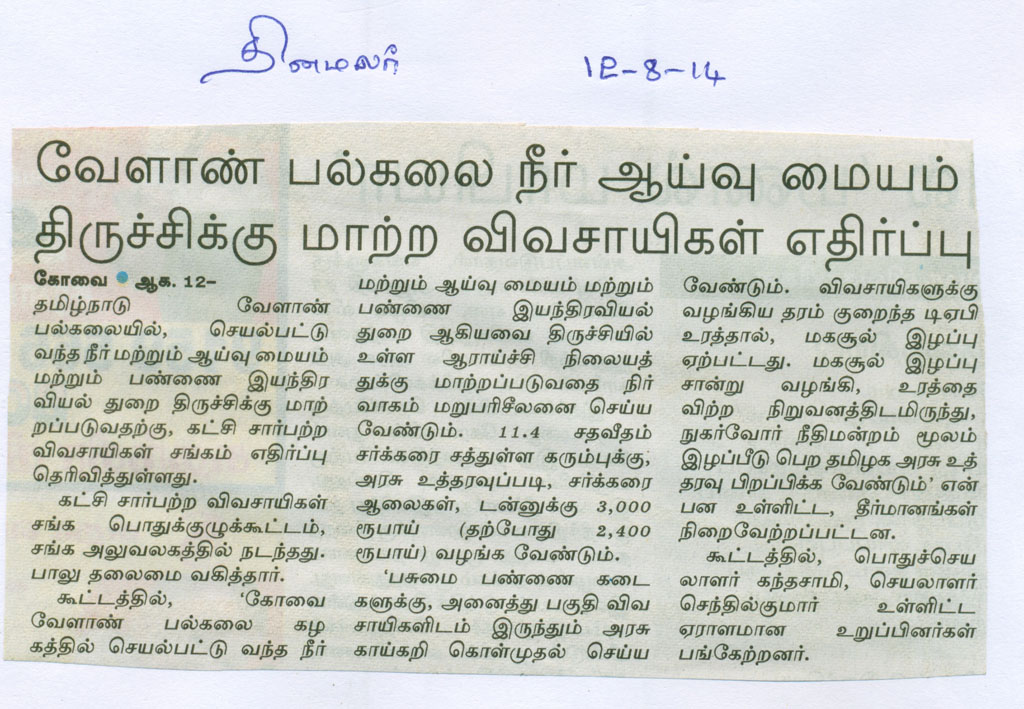 தினமலர் 12-8-14
வேளாண் பல்கலை நீர் ஆய்வு மையம்
திருச்சிக்கு மாற்ற விவசாயிகள் எதிர்ப்பு
கோவை ஆக. 12–
தமிழ்நாடு வேளாண்
பல்கலையில், செயல்பட்டு
வந்த நீர் மற்றும் ஆய்வு மையம்
மற்றும் பண்ணை இயந்திர
வியல் துறை திருச்சிக்கு மாற்
றப்படுவதற்கு, கட்சி சார்பற்ற
விவசாயிகள் சங்கம் எதிர்ப்பு
தெரிவித்துள்ளது.
கட்சி சார்பற்ற விவசாயிகள்
சங்க பொதுக்குழுக்கூட்டம்,
சங்க அலுவலகத்தில் நடந்தது.
பாலு தலைமை வகித்தார்.
கூட்டத்தில், ‘கோவை
வேளாண் பல்கலை கழ
கத்தில் செயல்பட்டு வந்த நீர்
மற்றும் ஆய்வு மையம் மற்றும்
பண்ணை இயந்திரவியல்
துறை ஆகியவை திருச்சியில்
உள்ள ஆராய்ச்சி நிலையத்
துக்கு மாற்றப்படுவதை நிர்
வாகம் மறுபரிசீலனை செய்ய
வேண்டும். 11.4 சதவீதம்
சர்க்கரை சத்துள்ள கரும்புக்கு,
அரசு உத்தரவுப்படி, சர்க்கரை
ஆலைகள், டன்னுக்கு 3,000
ரூபாய் (தற்போது 2,400
ரூபாய்) வழங்க வேண்டும்.
‘பசுமை பண்ணை கடை
களுக்கு, அனைத்து பகுதி விவ
சாயிகளிடம் இருந்தும் அரசு
காய்கறி கொள்முதல் செய்ய
வேண்டும். விவசாயிகளுக்கு
வழங்கிய தரம் குறைந்த டிஏபி
உரத்தால், மகசூல் இழப்பு
ஏற்பட்டது. மகசூல் இழப்பு
சான்று வழங்கி, உரத்தை
விற்ற நிறுவனத்திடமிருந்து,
நுகர்வோர் நீதிமன்றம் மூலம்
இழப்பீடு பெற தமிழக அரசு உத்
தரவு பிறப்பிக்க வேண்டும்’ என்
பன உள்ளிட்ட, தீர்மானங்கள்
நிறைவேற்றப்பட்டன.
கூட்டத்தில், பொதுச்செய
லாளர் கந்தசாமி, செயலாளர்
செந்தில்குமார் உள்ளிட்ட
ஏராளமான உறுப்பினர்கள்
பங்கேற்றனர்.